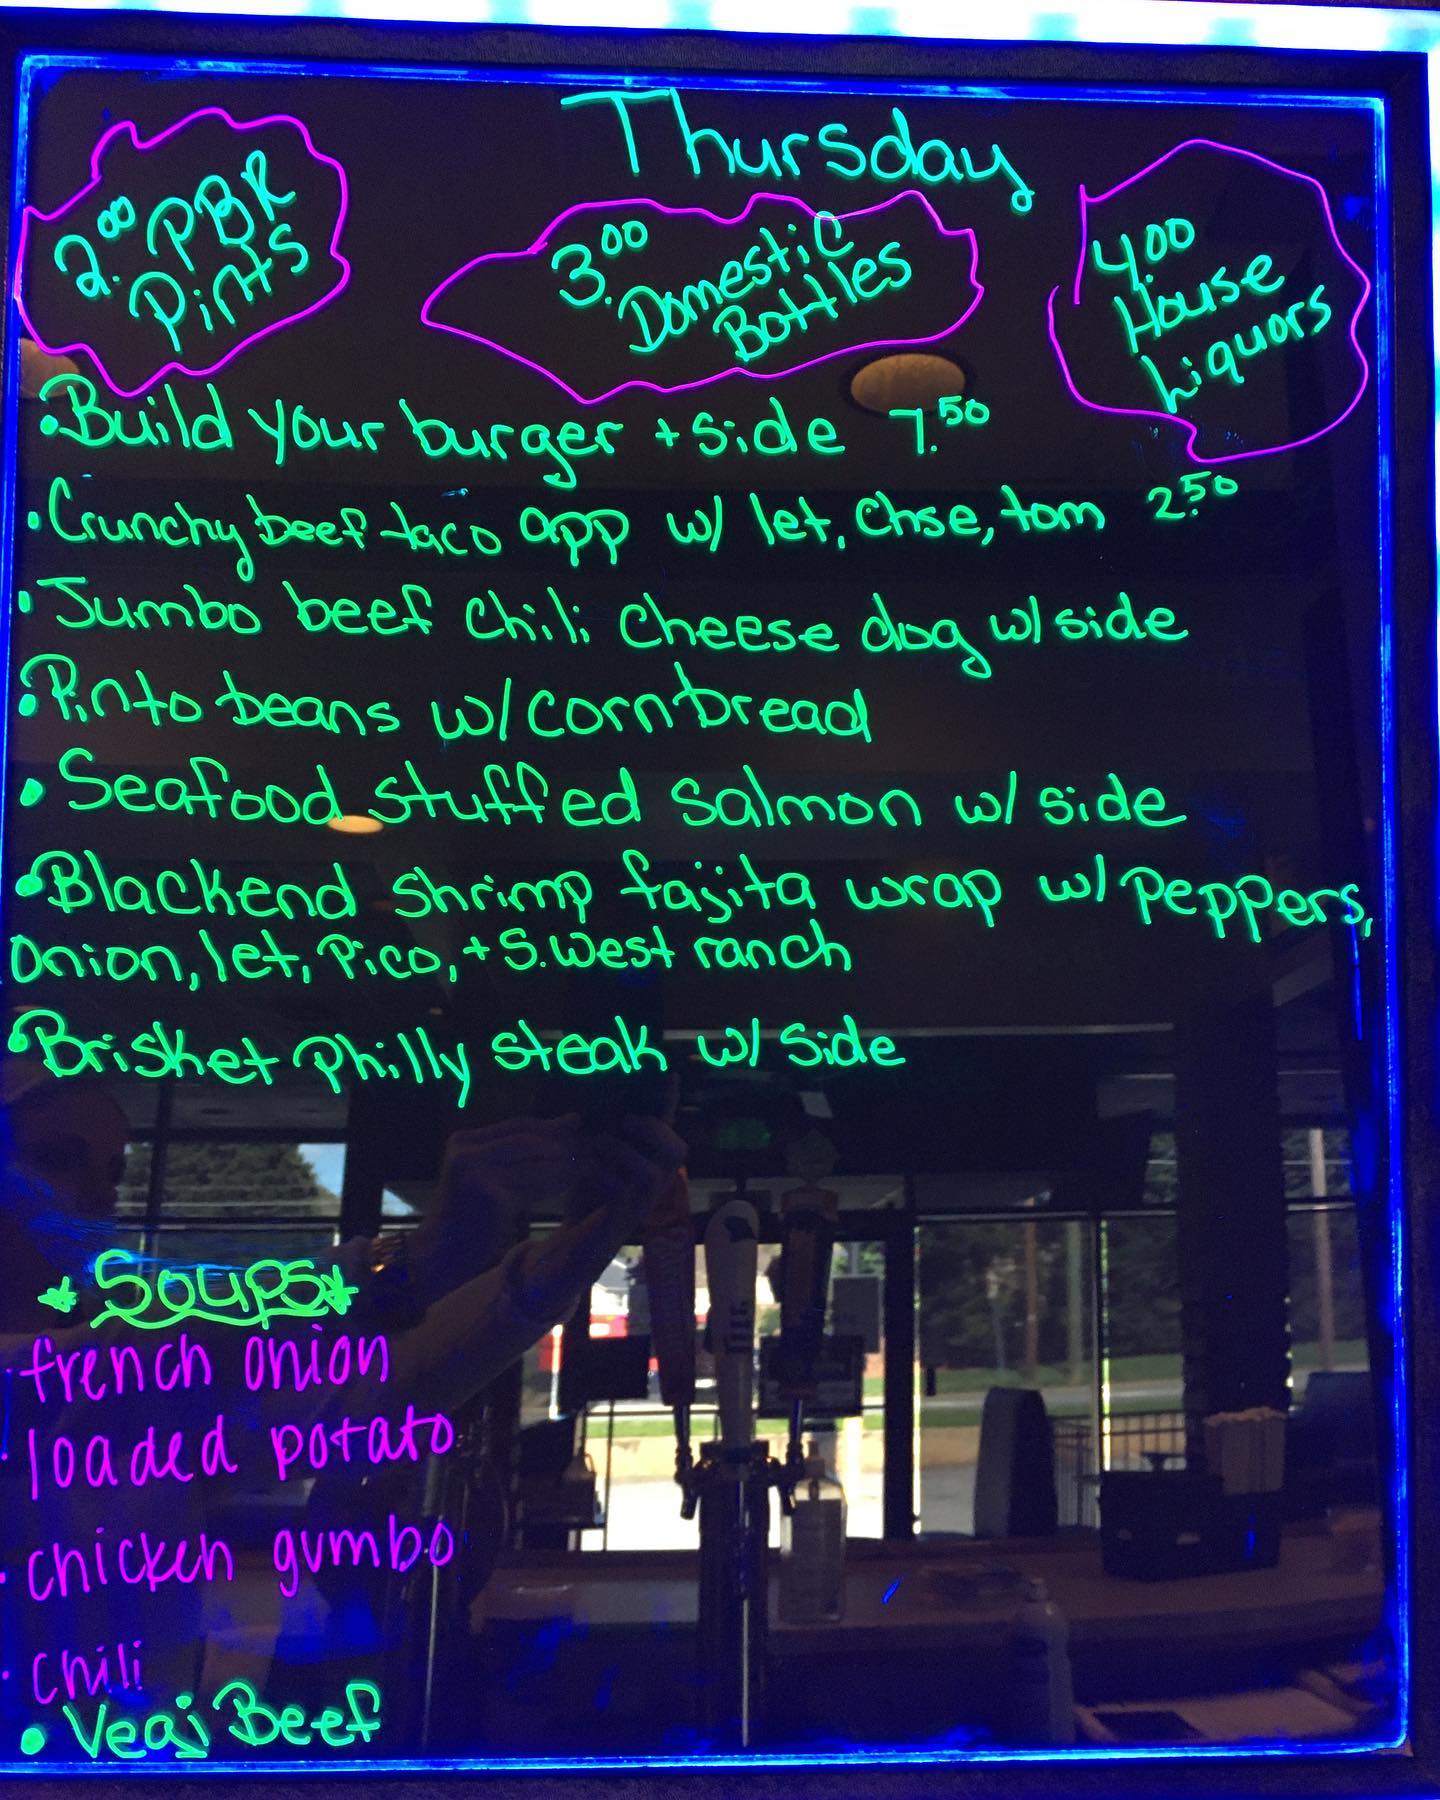 Thursday
2.00 PBR
Pints
3.00
Domestic
Bottles
4.00
House
Liquors
•Build your burger + side 7.50
•Crunchy beef taco app w/ let, Chse, tom 2.50
•Jumbo beef chili cheese dog w/ side
•Pinto beans w/ cornbread
•Seafood stuffed salmon w/ side
•Blackend shrimp fajita wrap w/ peppers,
Onion, let, Pico, + S.west ranch
•Brisket Philly steak w/ side
*Soups*
•french onion
•loaded potato
•chicken gumbo
•chili
•Vegi Beef